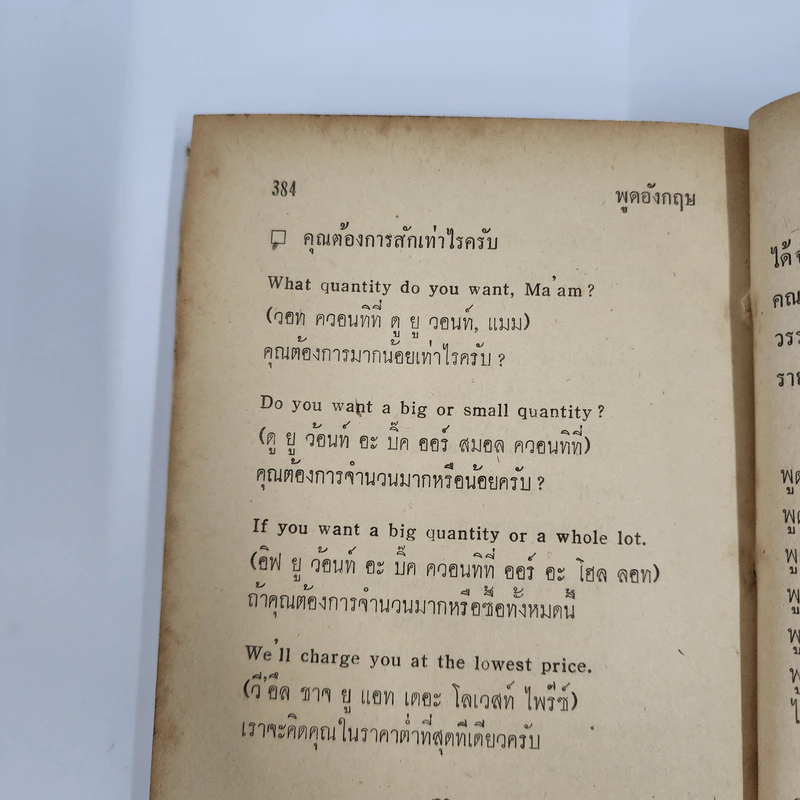 384
พูดอังกฤษ
คุณต้องการสักเท่าไรครับ
What quantity do you want, Ma'am ?
(วอท ควอนทิที่ ดู ยู วอนท์, แมม)
คุณต้องการมากน้อยเท่าไรครับ ?
Do you want a big or small quantity ?
(ดู ยู ว้อนท์ อะ บิ๊ค ออร์ สมอล ควอนทิที่)
คุณต้องการจำนวนมากหรือน้อยครับ ?
If you want a big quantity or a whole lot.
(อิฟ ยู ว้อนท์ อะ บิ๊ค ควอนทิที่ ออร์ อะ โฮล ลอท)
ถ้าคุณต้องการจำนวนมากหรือซื้อทั้งหมดนี้
We'll charge you at the lowest price.
(วี'อึล ชาจ ยู แอท เดอะ โลเวสท์ ไพร๊ซ์)
เราจะคิดคุณในราคาต่ำที่สุดทีเดียวครับ
ได้
คุณ
พูด